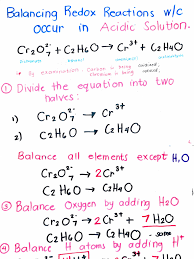 Balancing Redox Reactions w/c
occur in Acidic Solution.
Cr₂O₇²⁻ + C₂H₆O → Cr³⁺ + C₂H₄O
By examination: Carbon is being oxidized,
Chromium is being
① Divide the equation into two
halves:
1) Cr₂O₇²⁻ → Cr³⁺
2) C₂H₆O → C₂H₄O
Balance all elements except H,O
Cr₂O₇²⁻ → 2Cr³⁺
C₂H₆O → C₂H₄O
③ Balance Oxygen by adding H₂O
Cr₂O₇²⁻ → 2Cr³⁺ + 7H₂O
C₂H₆O → C₂H₄O same
④ Balance H atoms by adding H⁺